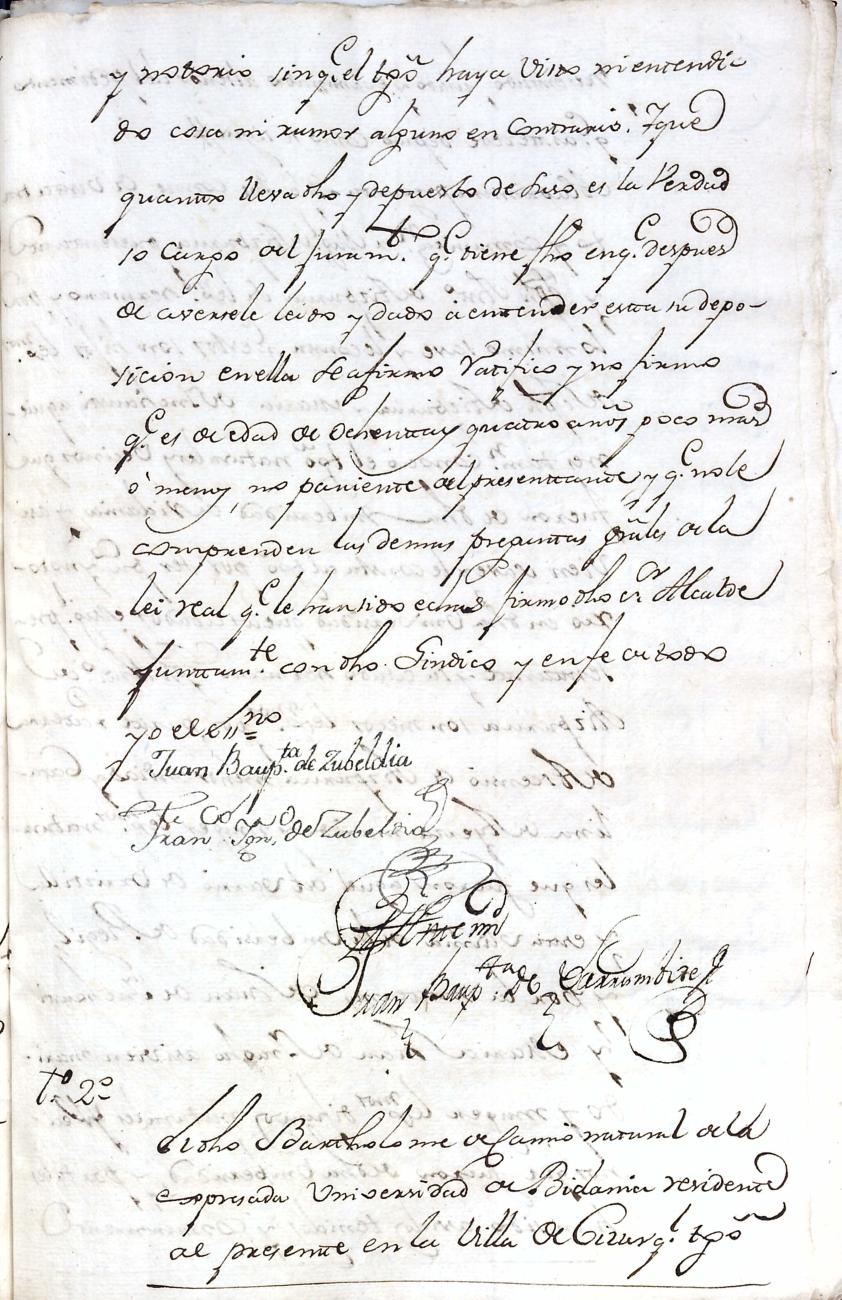 y notorio sin q.e el tgo haya visto ni entendi-
do cosa ni rumor alguno en contrario. Y que
quanto lleva dho y depuesto de suso es la Verdad
so cargo del Juram.to q.e tiene fho en q.e despues
de averse le leido y dado à entender esta su depo-
sicion en ella se afirmo ratifico y no firmo
q.e es de edad de ochenta y quatro años poco mas
ò menos, no pariente del presentante, y q.e no le
comprenden las demas preguntas grâles de la
lei real q.e le han sido echas firmo dho s.r Alcalde
Junttam.te con dho Sindico y en fe de todo
yo el ess.no =
Juan Baup.ta de Zubeldia
Fran.co Ign.o de Zubeldia
Ante mi
Juan Baup.ta de Larrumbide
t.o 2.o
El dho Bartholome de Camio natural de la
expresada Universidad de Bidania residente
al presente en la Villa de Cizurq.l tgo